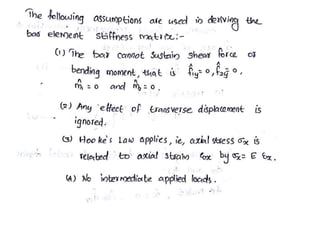 The following assumptions are used in deriving the
bar element stiffness matrix:-
(1) The bar cannot sustain shear force or
bending moment, that is f̂1y = 0, f̂2y = 0,
m̂1 = 0 and m̂2 = 0.
(2) Any effect of transverse displacement is
ignored.
(3) Hooke's Law applies, ie, axial stress σx is
related to axial strain εx by σx = E εx.
(4) No intermediate applied loads.